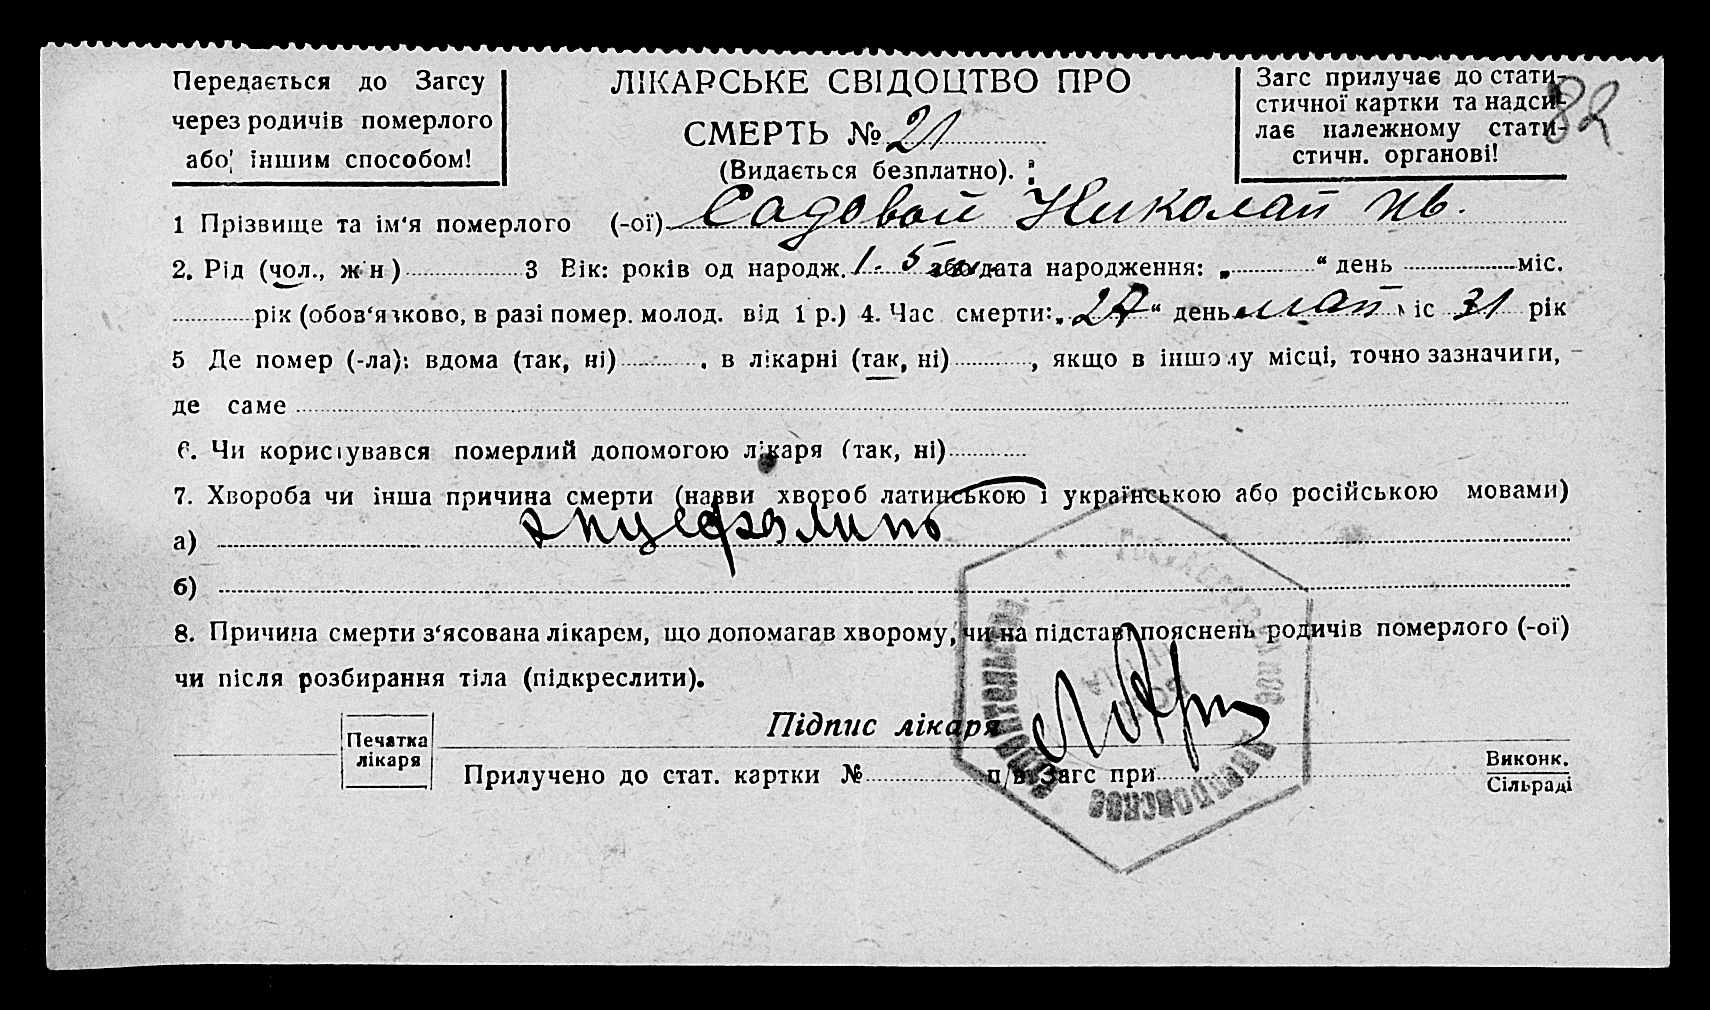 Передається до Загсу
через родичів померлого
або іншим способом!
ЛІКАРСЬКЕ СВІДОЦТВО ПРО
СМЕРТЬ № 21
(Видається безплатно).
Загс прилучає до стати-
стичної картки та надси-
лає належному стати-
стичн. органові!
82
1 Прізвище та ім'я померлого (-ої) Садовой Николай Ив.
2. Рід (чол., жін) 3 Вік: років од народж. 1. 5 або дата народження: „ “ день міс.
рік (обов'язково, в разі помер. молод. від 1 р.) 4. Час смерти: „ 27 “ день мая міс 31 рік
5 Де помер (-ла): вдома (так, ні) , в лікарні (так, ні) , якщо в іншому місці, точно зазначити,
де саме
6. Чи користувався померлий допомогою лікаря (так, ні)
7. Хвороба чи інша причина смерти (назви хвороб латинською і українською або російською мовами)
а) энцефалит
б)
8. Причина смерти з'ясована лікарем, що допомагав хворому, чи на підставі пояснень родичів померлого (-ої)
чи після розбирання тіла (підкреслити).
Підпис лікаря
Печатка
лікаря
Прилучено до стат. картки № п/в. Загс при
Виконк.
Сільраді